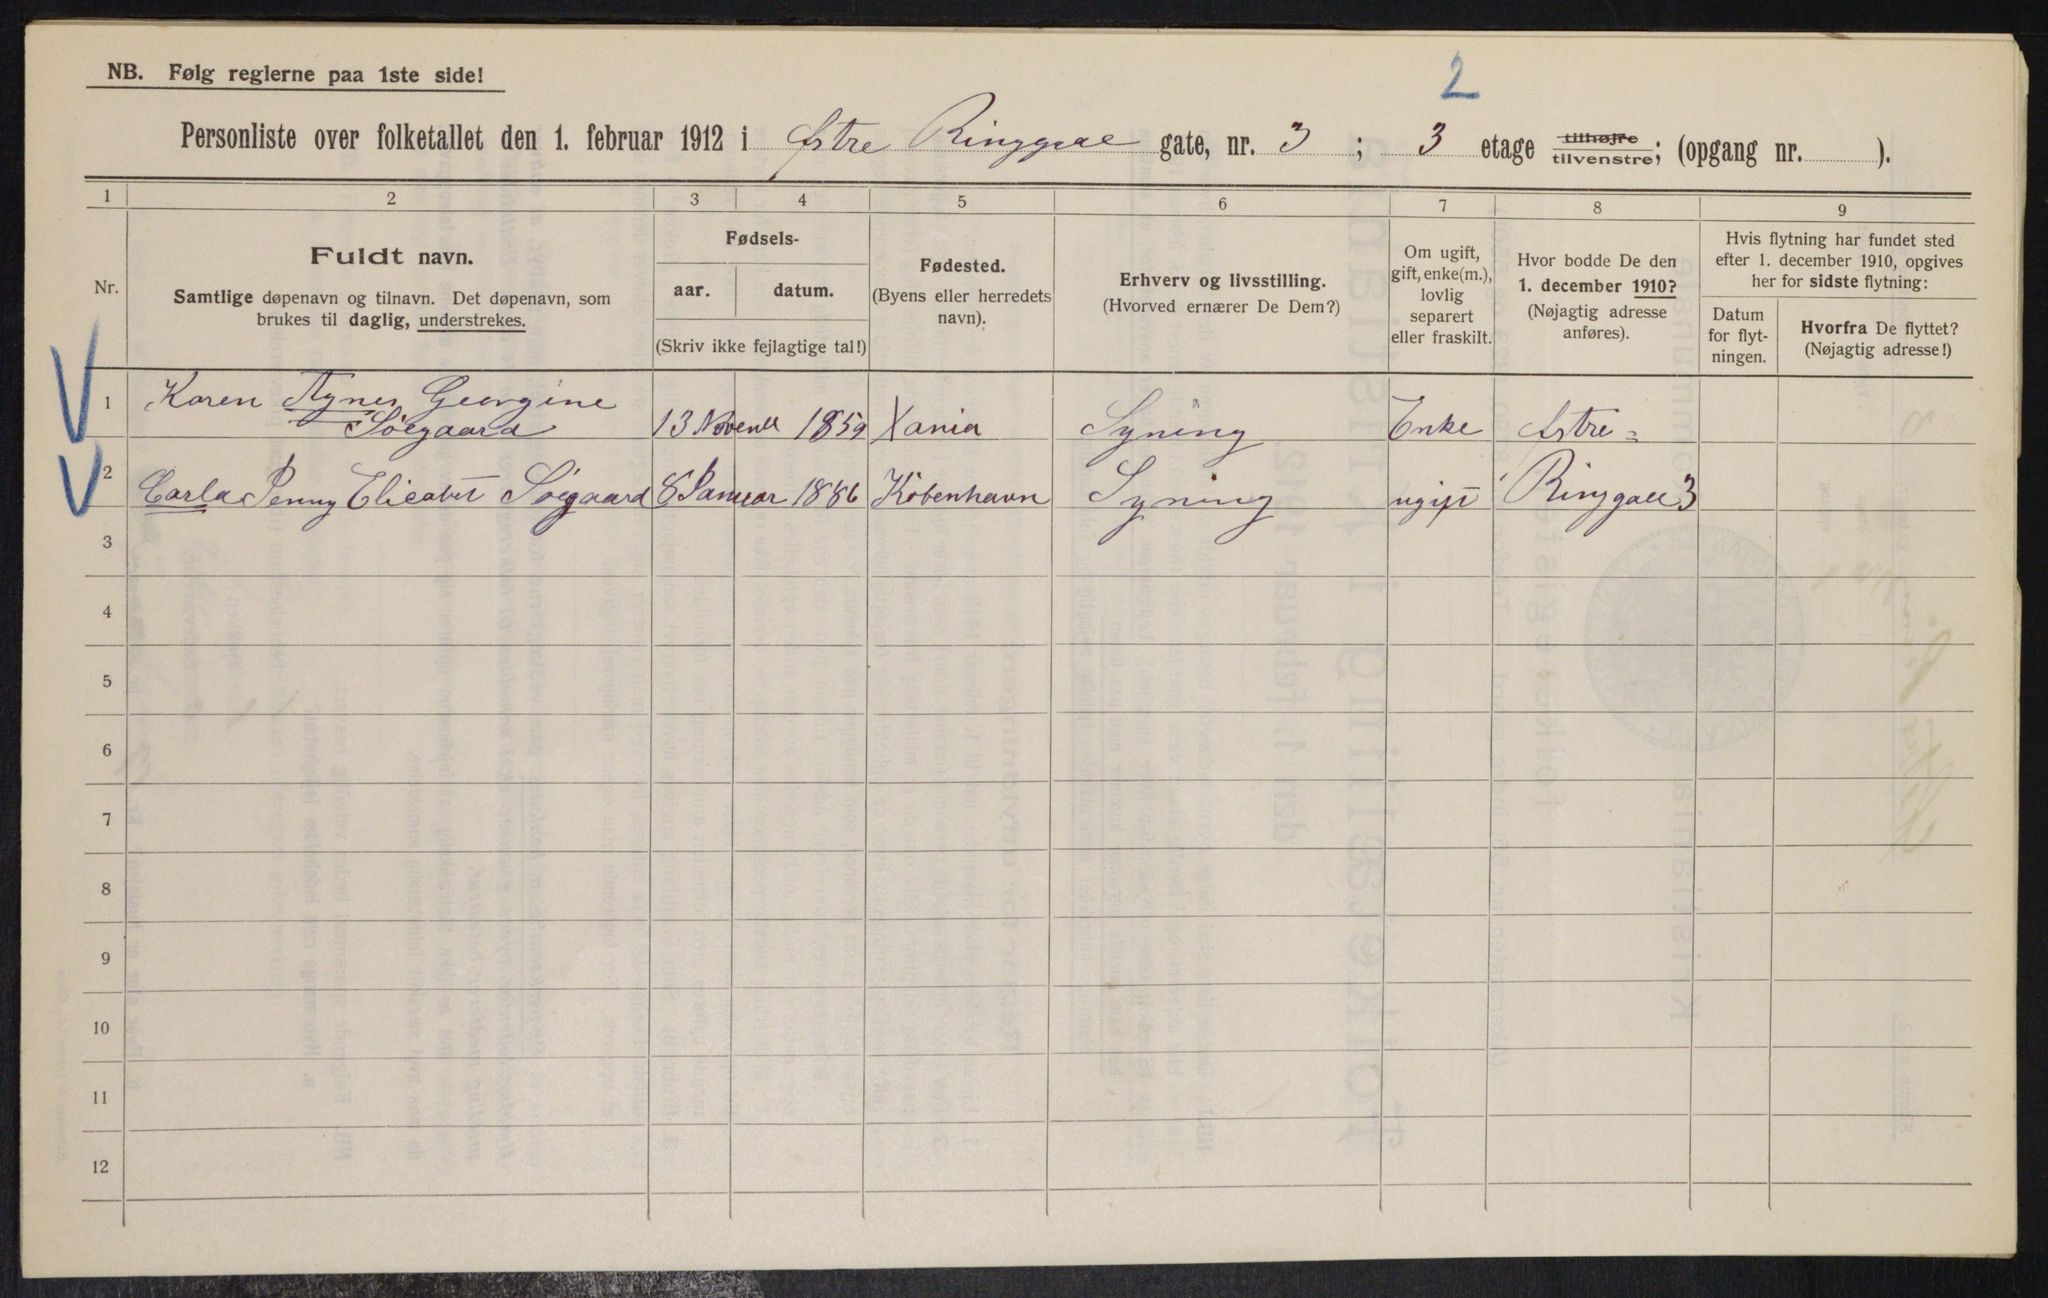 NB. Følg reglerne paa 1ste side!
2
Personliste over folketallet den 1. februar 1912 i Østre Ringgae gate, nr. 3 ; 3 etage tilhøjre tilvenstre; (opgang nr. ).
1 2 3 4 5 6 7 8 9
Nr.
Fuldt navn.
Samtlige døpenavn og tilnavn. Det døpenavn, som
brukes til daglig, understrekes.
Fødsels-
aar. datum.
(Skriv ikke fejlagtige tal!)
Fødested.
(Byens eller herredets
navn).
Erhverv og livsstilling.
(Hvorved ernærer De Dem?)
Om ugift,
gift, enke(m.),
lovlig
separert
eller fraskilt.
Hvor bodde De den
1. december 1910?
(Nøjagtig adresse
anføres).
Hvis flytning har fundet sted
efter 1. december 1910, opgives
her for sidste flytning:
Datum
for flyt-
ningen.
Hvorfra De flyttet?
(Nøjagtig adresse!)
1 Karen Agnes Georgine
Søegaard 13 Novemb 1859 Xania Syning Enke Østre=
2 Carla Penny Elisabet Søegaard 8 Januar 1886 København Syning ugift Ringgae 3
3
4
5
6
7
8
9
10
11
12